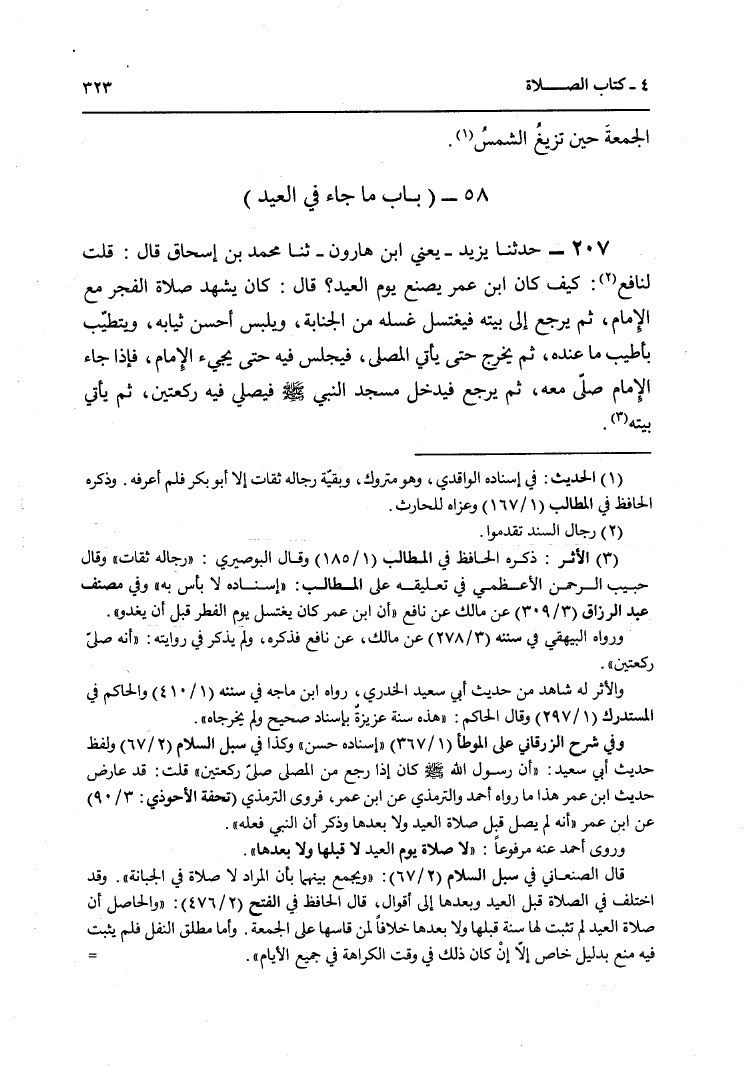 ٤ ـ كتاب الصـــــلاة ٣٢٣
الجمعةَ حين تزيغُ الشمسُ(١).
٥٨ ـ ( بـاب ما جاء في العيد )
٢٠٧ ـ حدثنـا يزيد ـ يعني ابن هارون ـ ثنـا محمد بن إسحاق قال : قلت
لنافع(٢): كيف كان ابن عمر يصنع يوم العيد؟ قال : كان يشهد صلاة الفجر مع
الإمام ، ثم يرجع إلى بيته فيغتسل غسله من الجنابة، ويلبس أحسن ثيابه، ويتطيّب
بأطيب ما عنده، ثم يخرج حتى يأتي المصلى، فيجلس فيه حتى يجيء الإمام، فإذا جاء
الإمام صلّى معه، ثم يرجع فيدخل مسجد النبي ﷺ فيصلي فيه ركعتين، ثم يأتي
بيته(٣).
(١) الحديث: في إسناده الواقدي، وهو متروك، وبقيّة رجاله ثقات إلا أبو بكر فلم أعرفه. وذكره
الحافظ في المطالب (١/ ١٦٧) وعزاه للحارث.
(٢) رجال السند تقدموا.
(٣) الأثـر : ذكـره الحـافظ في المـطالب (١/ ١٨٥) وقـال البوصيري : «رجاله ثقات» وقال
حبيب الـرحمن الأعـظمـي في تعـليقـه على المـطالـب: «إسنـاده لا بأس به» وفي مصنف
عبد الرزاق (٣/ ٣٠٩) عن مالك عن نافع «أن ابن عمر كان يغتسل يوم الفطر قبل أن يغدو».
ورواه البيهقي في سننه (٣/ ٢٧٨) عن مالك، عن نافع فذكره، ولم يذكر في روايته: «أنه صلىّ
ركعتين».
والأثر له شاهد من حديث أبي سعيد الخدري، رواه ابن ماجه في سننه (١/ ٤١٠) والحاكم في
المستدرك (١/ ٢٩٧) وقال الحاكم: «هذه سنة عزيزةٌ بإسناد صحيح ولم يخرجاه».
وفي شرح الزرقاني على الموطأ (١/ ٣٦٧) «إسناده حسن» وكذا في سبل السلام (٢/ ٦٧) ولفظ
حديث أبي سعيد: «أن رسول الله ﷺ كان إذا رجع من المصلى صلىّ ركعتين» قلت: قد عارض
حديث ابن عمر هذا ما رواه أحمد والترمذي عن ابن عمر، فروى الترمذي (تحفة الأحوذي: ٣/ ٩٠)
عن ابن عمر «أنه لم يصل قبل صلاة العيد ولا بعدها وذكر أن النبي فعله».
وروى أحمد عنه مرفوعاً : «لا صلاة يوم العيد لا قبلها ولا بعدها».
قال الصنعـاني في سبل السلام (٢/ ٦٧): «ويجمع بينهما بأن المراد لا صلاة في الجبانة». وقد
اختلف في الصلاة قبل العيد وبعدها إلى أقوال، قال الحافظ في الفتح (٢/ ٤٧٦): «والحاصل أن
صلاة العيد لم تثبت لها سنة قبلها ولا بعدها خلافاً لمن قاسها على الجمعة. وأما مطلق النفل فلم يثبت
فيه منع بدليل خاص إلّا إنْ كان ذلك في وقت الكراهة في جميع الأيام». =